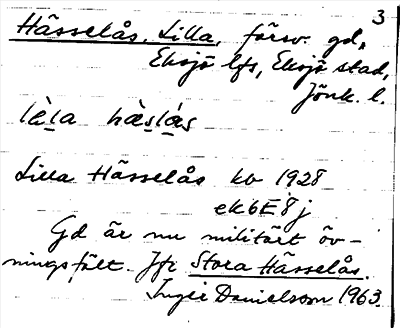 3
Hässelås, Lilla, försv. gd,
Eksjö lfs, Eksjö stad,
Jönk. l.
lìla hàslás
Lilla Hässelås kb 1928
ek 6E 8j
Gd är nu militärt öv-
ningsfält. Jfr Stora Hässelås.
Inger Danielsson 1963.